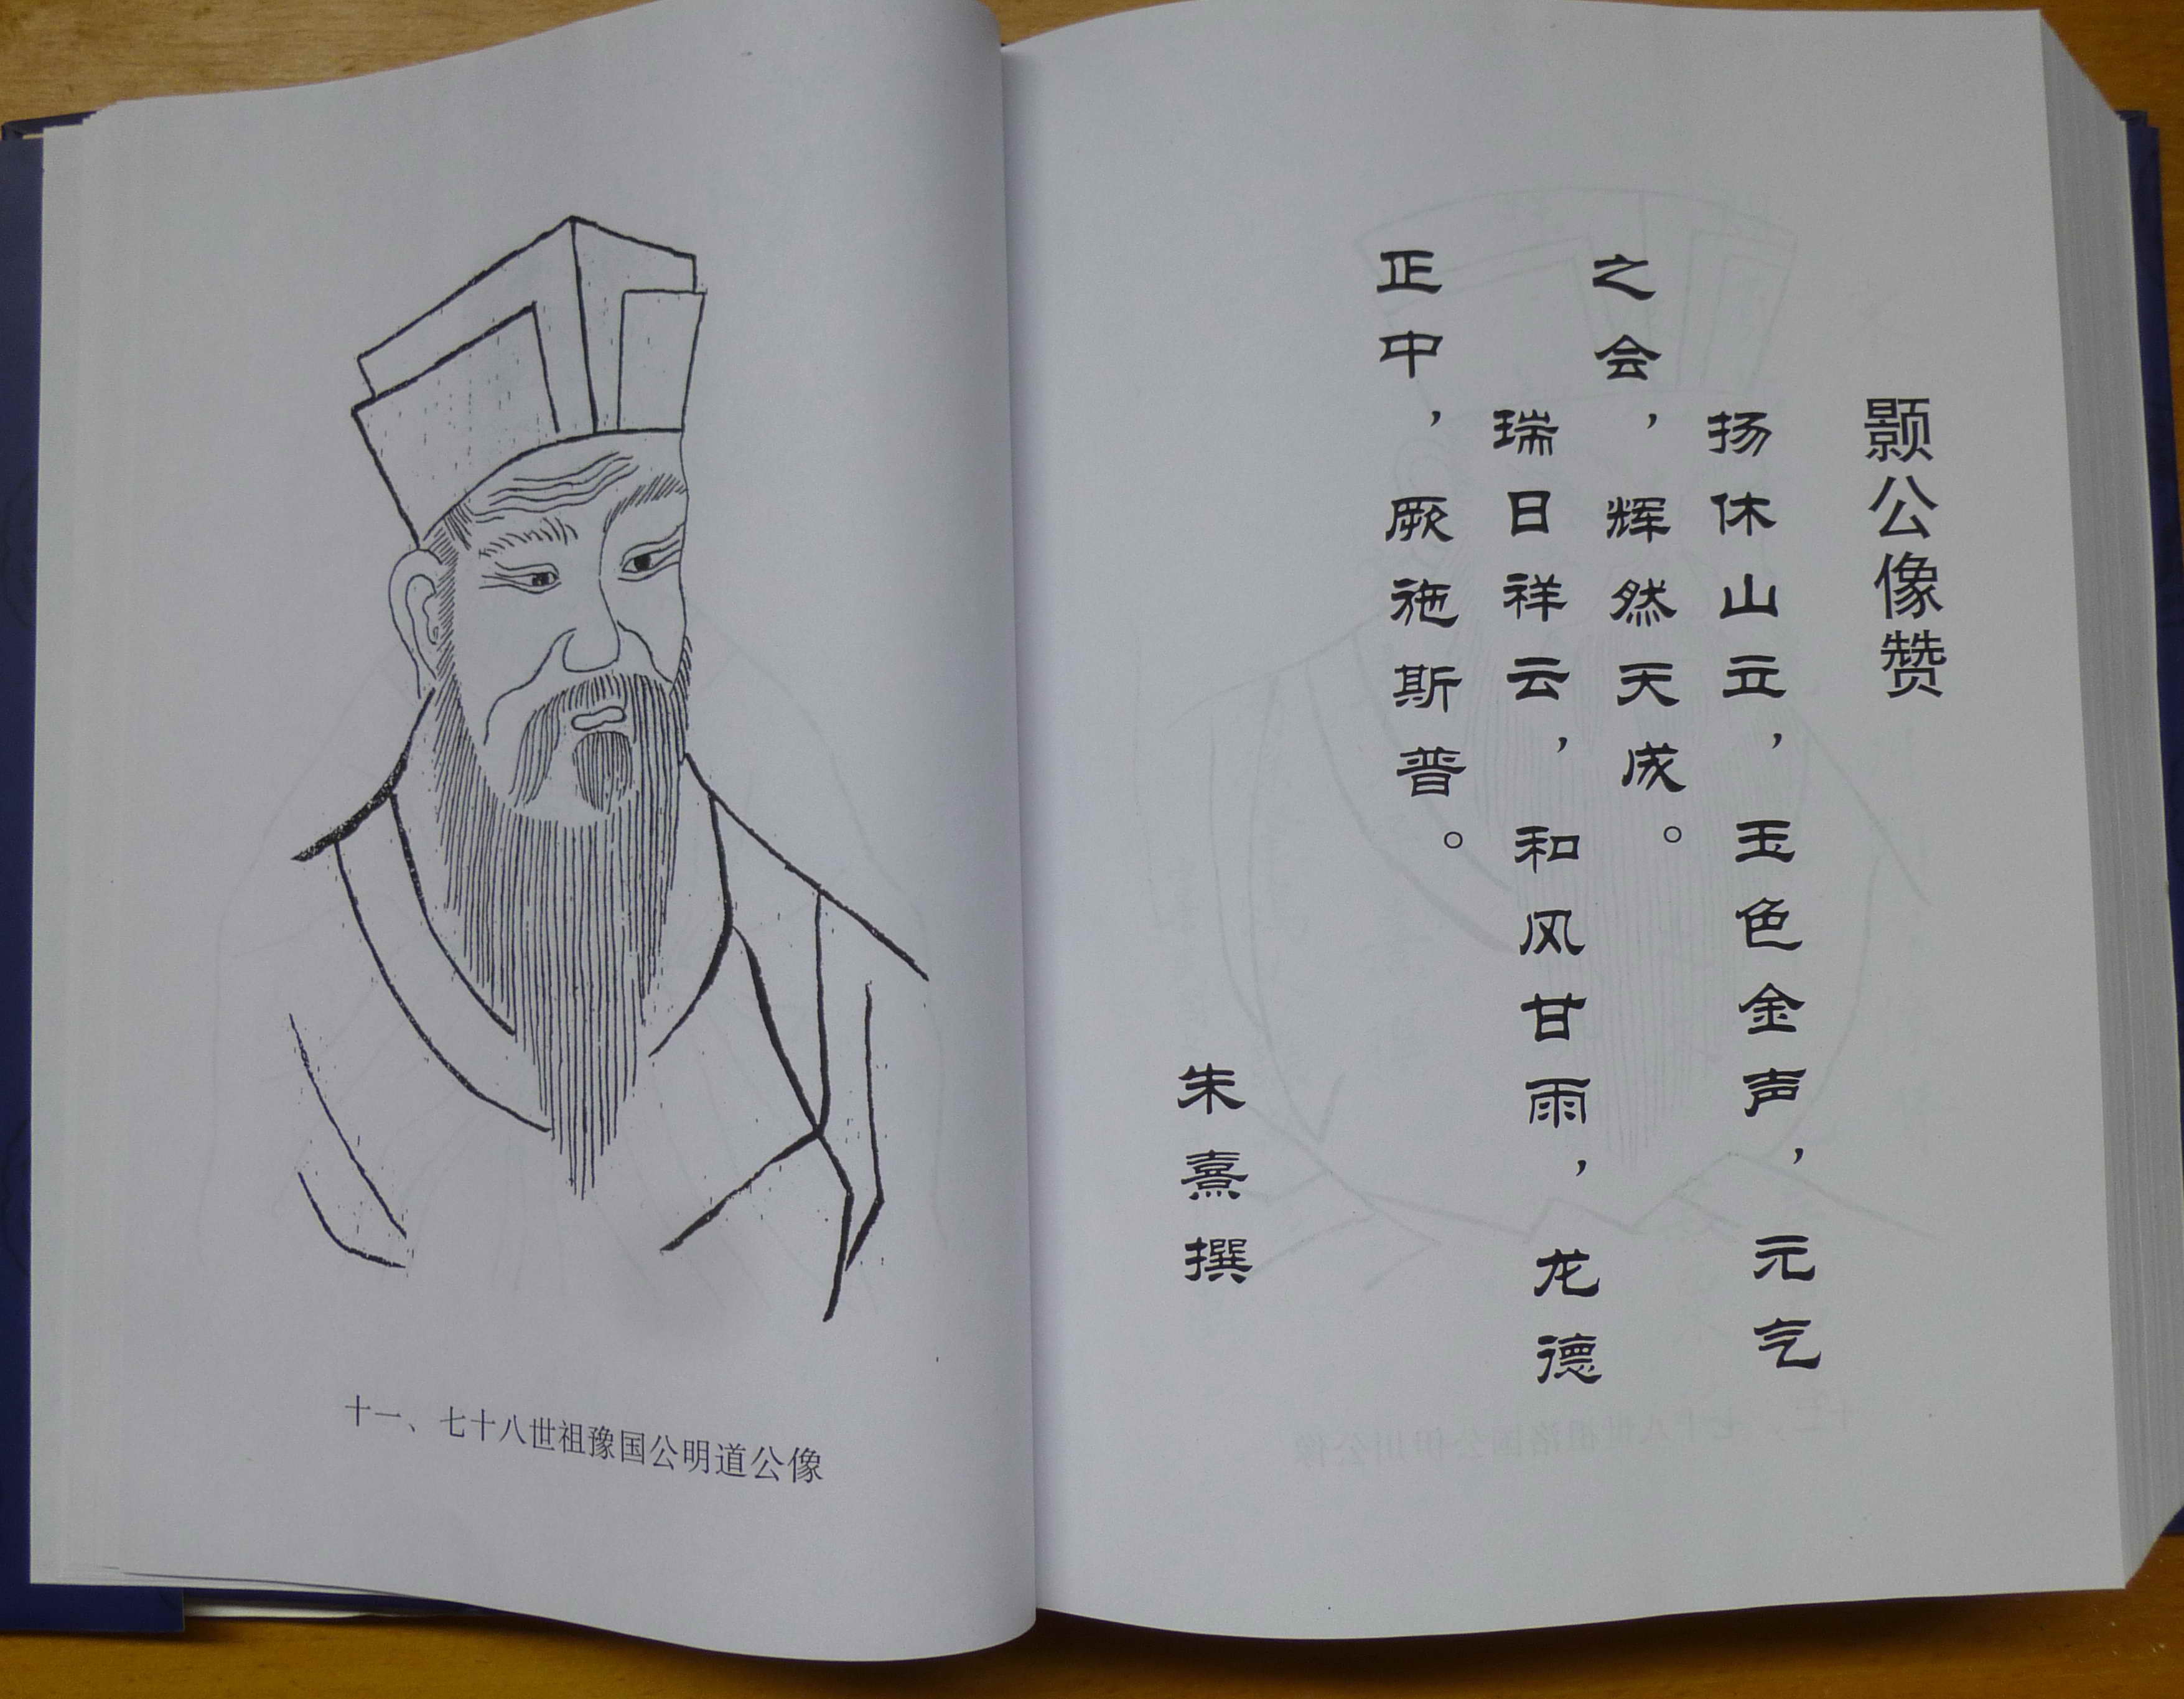 颢公像赞
扬休山立，玉色金声，元气
之会，辉然天成。
瑞日祥云，和风甘雨，龙德
正中，厥施斯普。
朱熹撰
十一、七十八世祖豫国公明道公像